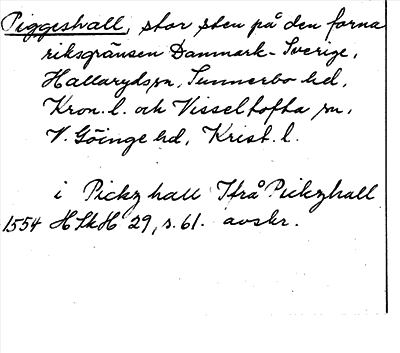 Piggeshall, stor sten på den forna
riksgränsen Danmark-Sverige,
Hallaryds sn, Sunnerbo hd,
Kron. l. och Visseltofta sn,
V. Göinge hd, Krist. l.
i Pickz hall Ifrå Pickzhall
1554 HSkH 29, s. 61. avskr.